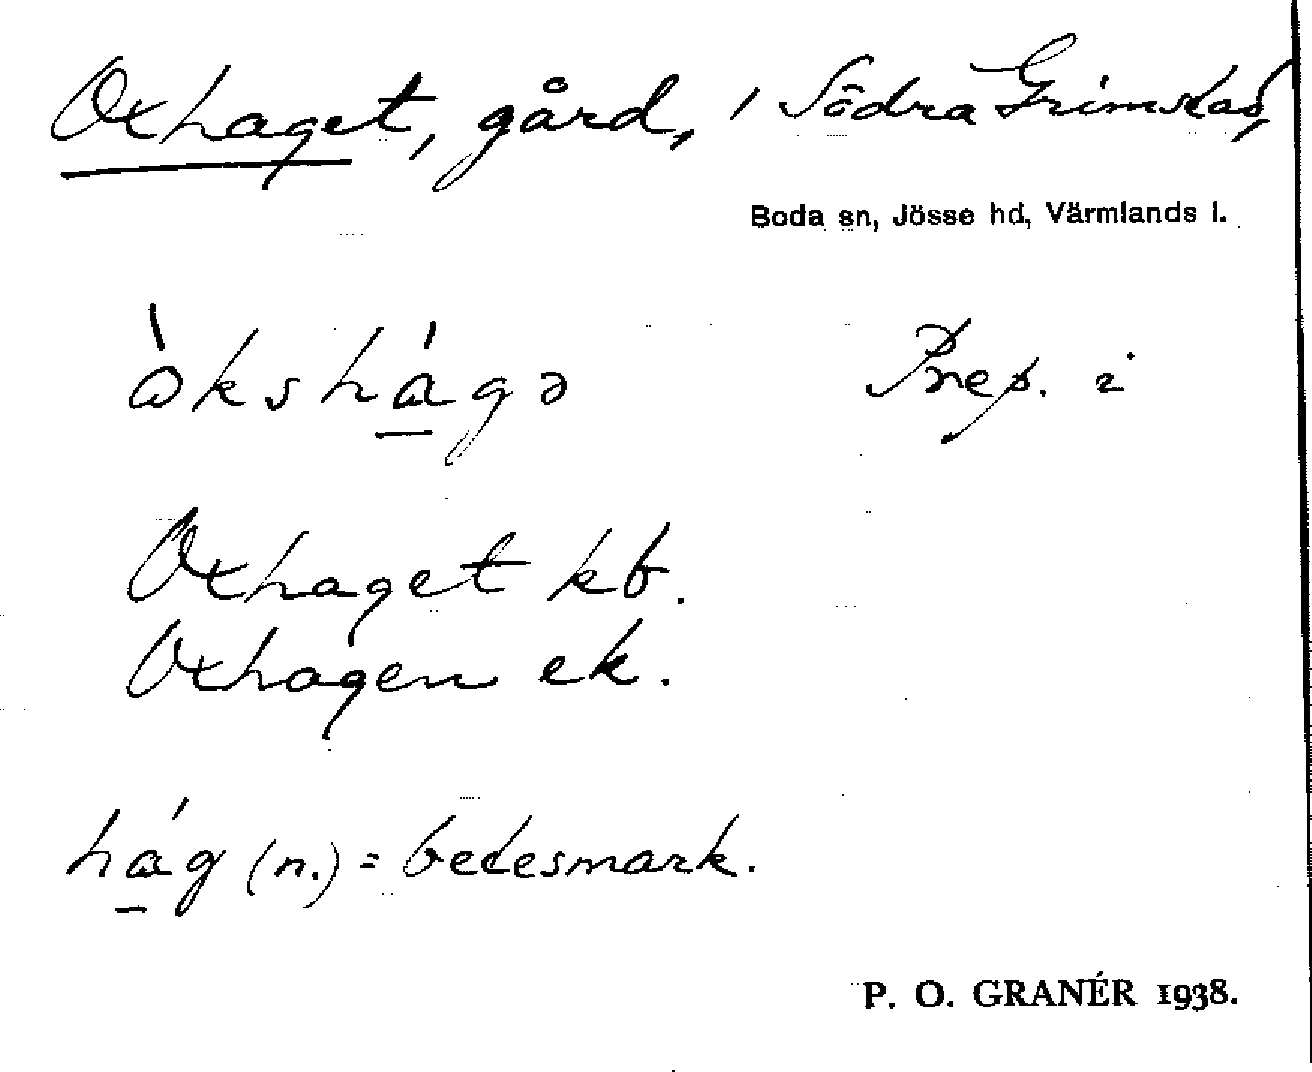 Oxhaget, gård, i Södra Grimstad,
Boda sn, Jösse hd, Värmlands l.
òkshá̠gə Prep. i
Oxhaget kb.
Oxhagen ek.
há̠g (n.) = betesmark.
P. O. GRANÉR 1938.